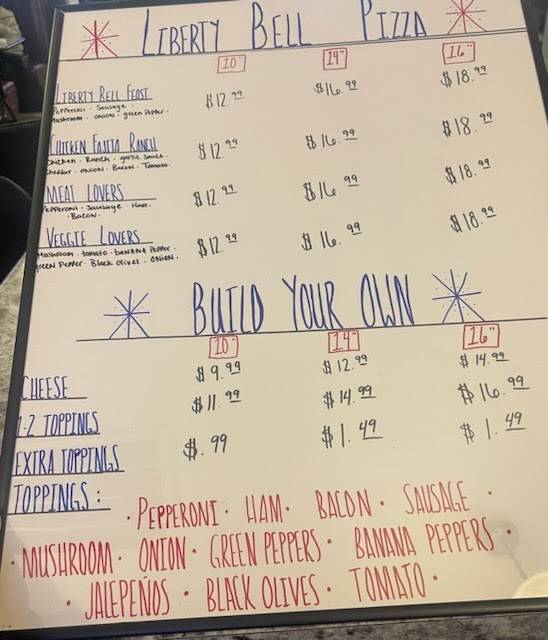 LIBERTY BELL PIZZA
10" 14" 16"
LIBERTY BELL FEAST $12.99 $16.99 $18.99
Pepperoni · Sausage ·
Mushroom · onion · green Pepper ·
CHICKEN FAJITA RANCH $12.99 $16.99 $18.99
Chicken · Ranch · garlic sauce ·
Cheddar · onion · Bacon · Tomato ·
MEAT LOVERS $12.99 $16.99 $18.99
Pepperoni · Sausage · Ham ·
· Bacon ·
VEGGIE LOVERS $12.99 $16.99 $18.99
Mushroom · tomato · banana Pepper ·
green Pepper · Black olives · onion ·
BUILD YOUR OWN
10" 14" 16"
CHEESE $9.99 $12.99 $14.99
1-2 TOPPINGS $11.99 $14.99 $16.99
EXTRA TOPPINGS $.99 $1.49 $1.49
TOPPINGS:
· PEPPERONI · HAM · BACON · SAUSAGE ·
· MUSHROOM · ONION · GREEN PEPPERS · BANANA PEPPERS ·
· JALEPEÑOS · BLACK OLIVES · TOMATO ·